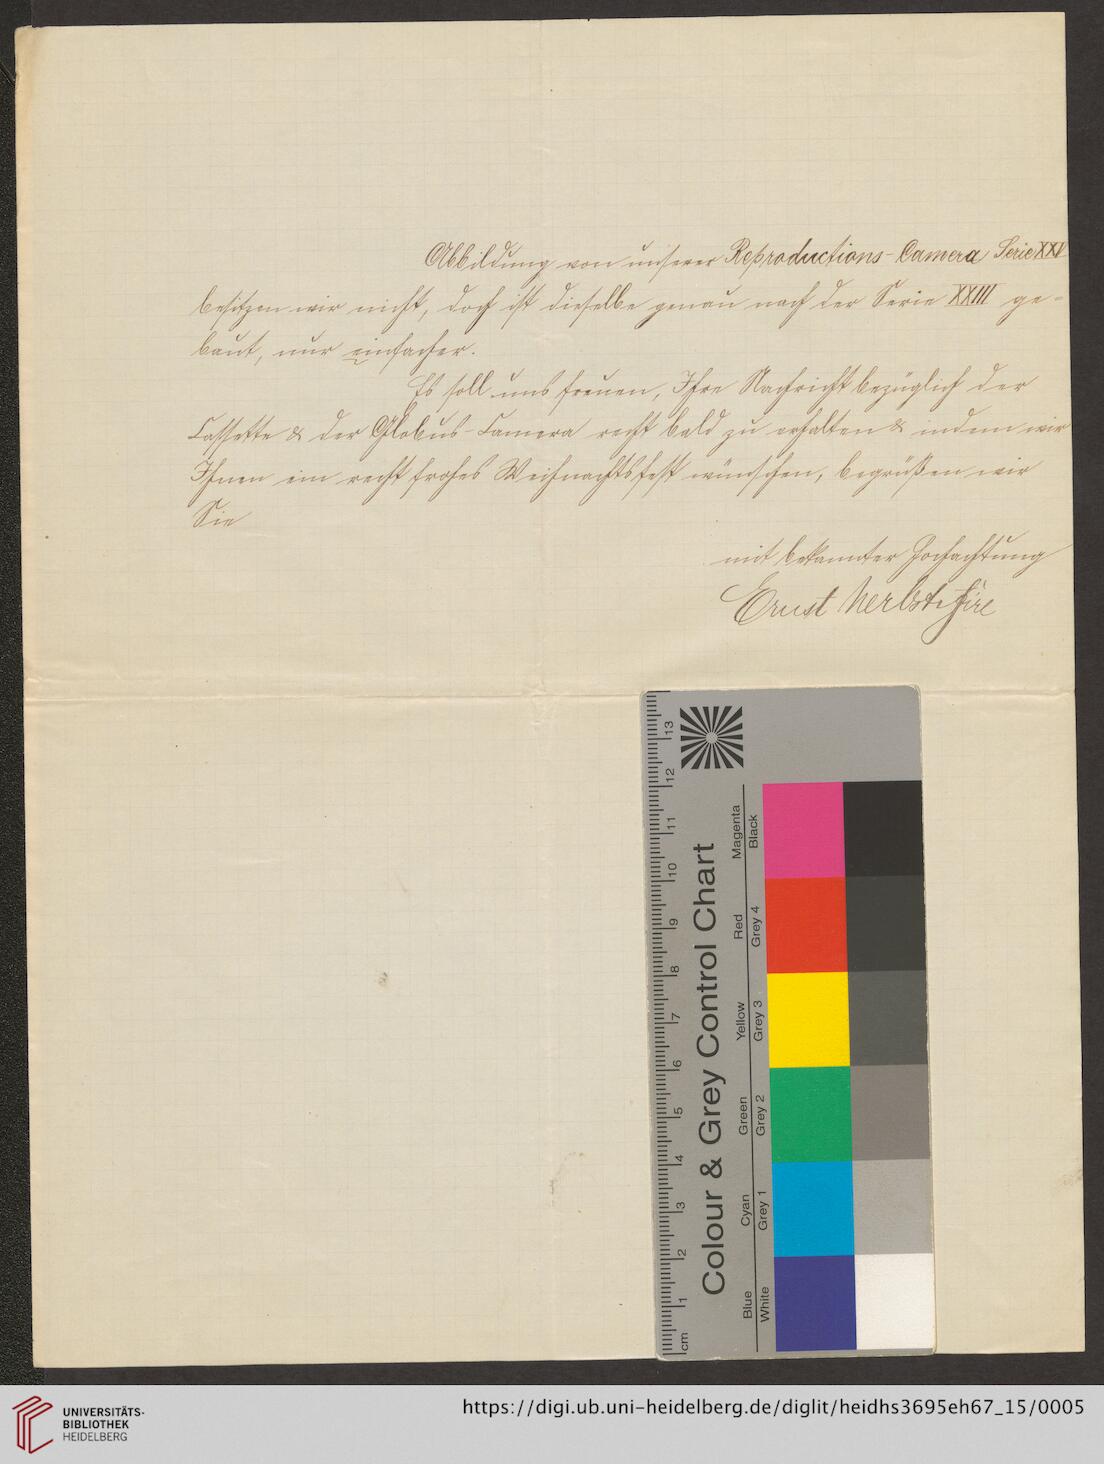 Abbildung von unserer Reproductions-Camera Serie XXV
besitzen wir nicht, doch ist dieselbe genau nach der Serie XXIII ge-
baut, nur einfacher.
Es soll uns freuen, Ihre Nachricht bezüglich der
Cassette & der Globus-Camera recht bald zu erhalten & indem wir
Ihnen ein recht frohes Weihnachtsfest wünschen, begrüßen wir
Sie
mit bekannter Hochachtung
Ernst Herbst & Firl
Colour & Grey Control Chart
Blue Cyan Green Yellow Red Magenta
White Grey 1 Grey 2 Grey 3 Grey 4 Black
cm 1 2 3 4 5 6 7 8 9 10 11 12 13
UNIVERSITÄTS-
BIBLIOTHEK
HEIDELBERG
https://digi.ub.uni-heidelberg.de/diglit/heidhs3695eh67_15/0005